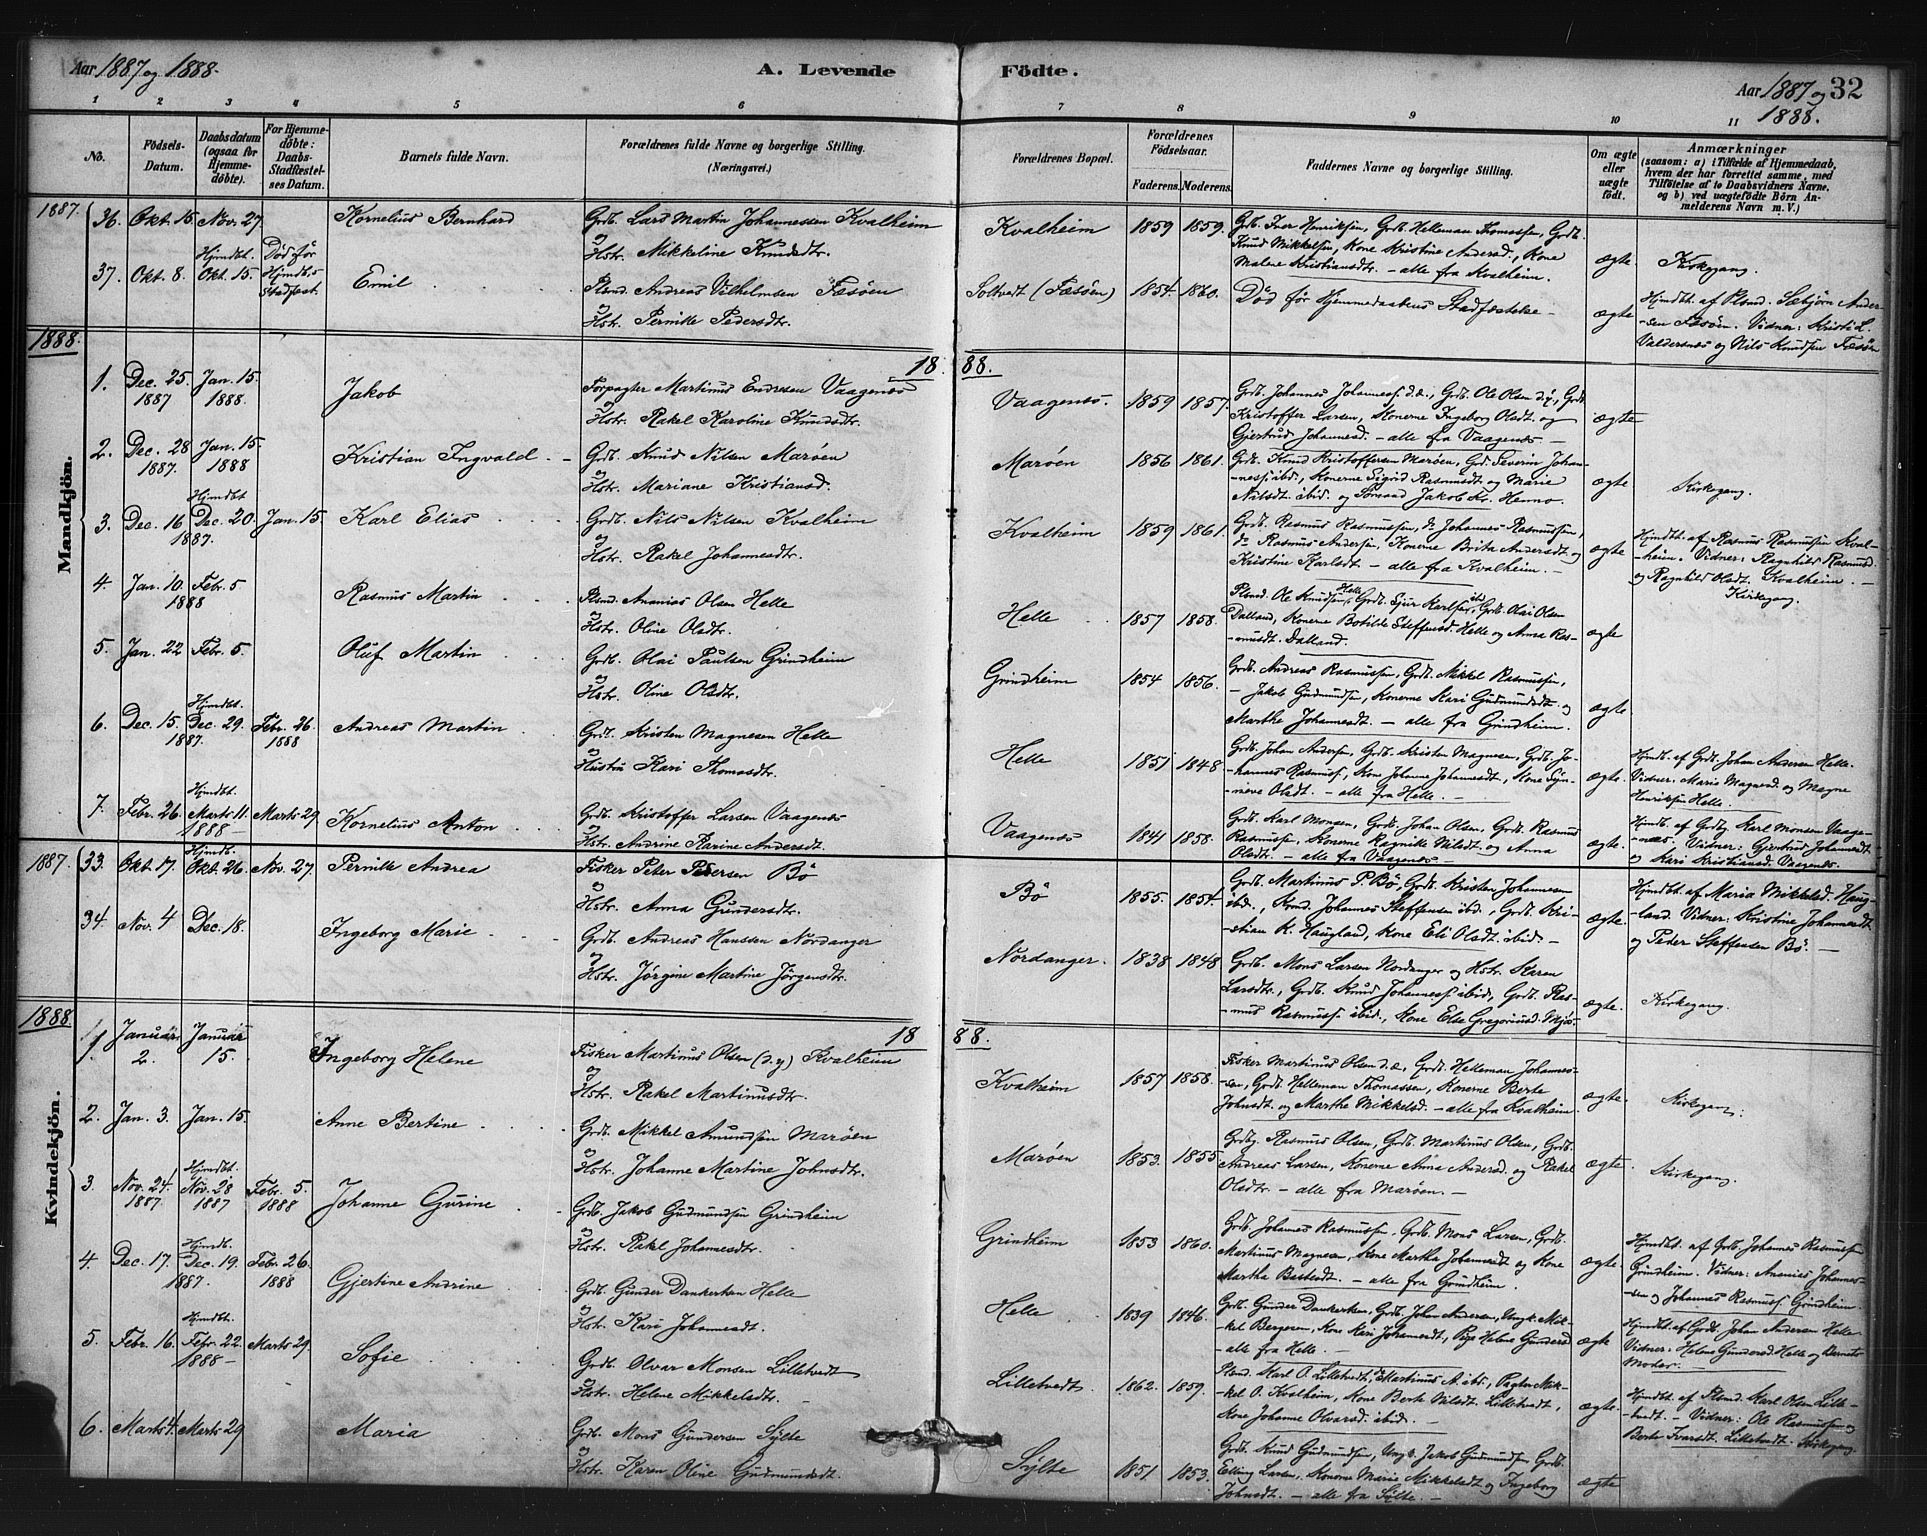 Aar 1887 og 1888.
A. Levende Födte.
Aar 1887 og 1888.
32
1 2 3 4 5 6 7 8 9 10 11
No.
Födsels-Datum.
Daabsdatum (ogsaa for Hjemmedöbte).
For Hjemmedöbte: Daabs-Stadfæstelses Datum.
Barnets fulde Navn.
Forældrenes fulde Navne og borgerlige Stilling. (Næringsvei.)
Forældrenes Bopæl.
Forældrenes Födselsaar.
Faderens. Moderens.
Faddernes Navne og borgerlige Stilling.
Om ægte eller uægte födt.
Anmærkninger (saasom: a) i Tilfælde af Hjemmedaab, hvem der har forrettet samme, med Tilföielse af to Daabsvidners Navne, og b) ved uægtefödte Börn Anmelderens Navn m. V.)
Mandkjön.
1887.
36. Okt. 15. Nov. 27. Kornelius Bernhard Grdb. Lars Martin Johannessen Kvalheim og Hstr. Mikkeline Knudsdtr. Kvalheim 1859 1859. Grdb. Iver Henriksen, Grdb. Helleman Thomassen, Grdb. Knud Mikkelsen, Kone Kristine Andersd., Kone Malene Kristiansdtr. – alle fra Kvalheim. ægte. Kirkegang.
37. Okt. 8. Hjmdbt. Okt. 15. Död för Hjmdbs. Stadfæst. Emil Plsmd. Andreas Vilhelmsen Fæsöen og Hstr. Pernille Pedersdtr. Soltvedt (Fæsöen) 1854. 1860. Död för Hjemmedaabens Stadfæstelse – ægte Hjmdbt. af Plsmd. Sæbjörn Andersen Fæsöen. Vidner: Kristi L. Valdersnes og Nils Knudsen Fæsöen
1888.
1888.
1. Dec. 25. 1887 Jan. 15. 1888. Jakob Forpagter Martinus Endresen Vaagenes og Hstr. Rakel Karoline Knudsdtr. Vaagenes. 1859 1857. Grdb. Johannes Johanness. d.æ., Grdb. Ole Olsen d.y., Grdb. Kristoffer Larsen, Konerne Ingeborg Olsdt. og Gjertrud Johannesd. – alle fra Vaagenes – ægte
2. Dec. 28 1887. Jan. 15. 1888 Kristian Ingvald Grdb. Knud Nilsen Maröen og Hstr. Mariane Kristiansd. Maröen 1856 1861. Grdb. Knud Kristoffersen Maröen, Grd. Severin Johannesj ibd., Konerne Sigrid Rasmusdt og Marie Nilsdt ibid. og Jakob Kr. Henno. ægte Kirkegang.
3. Dec. 16 Hjmdbt Dec. 20. 1887. Jan. 15 Karl Elias Grdb. Nils Nilsen Kvalheim og Hstr. Rakel Johannesdtr. Kvalheim 1859 1861. Grdb. Rasmus Rasmussen, do Johannes Rasmussen, do Rasmus Andersen, Konerne Brita Andersdt. og Kristine Karlsdt. – alle fra Kvalheim. – ægte Hjmdbt. af Rasmus Rasmussen Kvalheim. Vidner: Ragnhild Rasmusd. og Ragnhild Olsdt. Kvalheim. – Kirkegang.
4. Jan. 10. 1888 Febr. 5 Rasmus Martin Plsmd. Ananias Olsen Helle og Hstr. Oline Olsdtr. Helle 1857 1858. Plsmd Ole Knudsen Helle, Grdb. Sjur Karlsen ibd, Grdb. Olai Olsen Dalland, Konerne Botilde Steffensd. Helle og Anna Rasmusdt. Dalland. ægte
5. Jan. 22 Febr. 5. Oluf Martin Grdb. Olai Paulsen Grindheim og Hstr. Oline Olsdtr. Grindheim 1854 1856. Grdb. Andreas Rasmussen, Grdb. Mikkel Rasmussen, – Jakob Gudmundsen, Konerne Kari Gudmundsdt og Marthe Johannesdt. – alle fra Grindheim. ægte.
6. Dec. 15. Hjmdbt. Dec. 29. 1887. Febr. 26. 1888 Andreas Martin Grdb. Kristen Magnesen Helle og Hustru Kari Thomasdtr. Helle 1851 1848 Grdb. Johan Andersen, Grdb. Kristen Magnesen, Grdb. Johannes Rasmuss., Kone Johanne Johannesdt., Kone Synneve Olsdt. – alle fra Helle. – ægte. Hjmdb. af Grdb. Johan Andersen Helle. Vidner: Marie Magnesd. og Magne Henriksen Helle.
7. Febr. 26. Hjmdbt. Marts 11. 1888 – Marts 29 Kornelius Anton Grdb. Kristoffer Larsen Vaagenes og Hstr. Andrine Karine Andersdt. Vaagenes 1841 1858. Grdb. Karl Monsen, Grdb. Johan Olsen, Grdb. Rasmus Rasmussen, Konerne Ragnille Nilsdt. og Anna Olsdt. – alle fra Vaagenes – ægte. Hjmdbt. af Grdbg Karl Monsen Vaagenæs. Vidner: Gjertrud Johannesdt. og Kari Kristiansd. Vaagenes.
Kvindekjön.
1887.
33. Okt. 17. Hjmdb. Okt. 26. Nov. 27. Pernille Andrea Fisker Peter Pedersen Bö og Hstr. Anna Gundersdtr. Bö 1855. 1854. Grdb. Martinus P. Bö, Grdb. Kristen Johannesen ibid., Kmd. Johannes Steffensen ibid., Grdb. Kristian K. Haugland, Kone Eli Olsdt. ibid. – ægte Hjmdbt. af Maria Mikkelsd. Haugland. Vidner: Kristine Johannesdt. og Peder Steffensen Bö. –
34. Nov. 4 Dec. 18. Ingeborg Marie Grdb. Andreas Hanssen Nordanger og Hstr. Jörgine Martine Jörgensdtr. Nordanger. 1838 1848 Grdb. Mons Larsen Nordanger og Hstr. Karen Larsdtr., Grdb. Knud Johanness ibid, Grdb. Rasmus Rasmuss. ibid., Kone Else Gregoriusd. Mjös. ægte. Kirkegang.
1888.
1888.
1. Januar 2. Januar 15. Ingeborg Helene Fisker Martinus Olsen (d.y.) Kvalheim og Hstr. Rakel Martinusdtr. Kvalheim 1857 1858. Fisker Martinus Olsen d.æ., Grdb. Helleman Johannessen, Grdb. Helleman Thomassen, Konerne Berte Johnsdt. og Marthe Mikkelsd. – alle fra Kvalheim. ægte. Kirkegang.
2. Jan. 3. Jan. 15. Anne Bertine Grdb. Mikkel Amundsen Maröen og Hstr. Johanne Martine Johnsdtr. Maröen 1853. 1855 Grdbg. Rasmus Olsen, Grdb. Martinus Olsen, Grdb. Andreas Larsen, Konerne Anna Andersd. og Rakel Olsdtr. – alle fra Maröen. – ægte. Kirkegang.
3. Nov. 24. 1887. Hjmdbt. Nov. 28 1887 Febr. 5. 1888 Johanne Gurine Grdb. Jakob Gudmundsen Grindheim og Hstr. Rakel Johannesdtr. Grindheim 1853 1860. Grdb. Johannes Rasmussen, Grdb. Mons Larsen, Grdb. Martinus Magnesen, Kone Martha Johannesdt og Kone Martha Bastesdt. – alle fra Grindheim. ægte. Hjmdbt. af Grdb. Johannes Rasmussen Grindheim. Vidner: Ananias Johannessen og Johannes Rasmuss. Grindheim.
4. Dec. 17. Hjmdb. Dec. 19. 1887. Febr. 26. 1888 Gjertine Andrine Grdb. Gunder Dankertsen Helle og Hstr. Kari Johannesdt. Helle 1839 1846. Grdb. Gunder Dankertsen, Grdb. Johan Andersen, Ungk. Mikkel Bergesen, Kone Kari Johannesdt., Pige Helene Gundersd. – alle fra Helle. – ægte Hjmdbt. af Grdb. Johan Andersen Helle. Vidner: Helene Gundersd. Helle og Barnets Moder. –
5. Febr. 16. Hjmdbt. Febr. 22. 1888 – Marts 29. Sofie Grdb. Olvar Monsen Lilletvedt og Hstr. Helene Mikkelsdtr. Lilletvedt 1862. 1859. Plsmd. Karl O. Lilletvedt, Martinus A. ibd., Pagter Mikkel O. Kvalheim, Kone Berte Nilsdt. Lilletvedt, Kone Johanne Olvarsd. ibid. – ægte. Hjmdbt. af Plsmd. Karl Olsen Lilletvedt. – Vidner: Ole Rasmussen og Berte Ivarsdt. Lilletvedt. Kirkegang.
6. Marts 4. Marts 29 Maria Grdb. Mons Gundersen Sylte og Hstr. Karen Oline Gudmundsdt. Sylte 1851 1853. Grdb. Knud Gudmundsen, Ungk. Jakob Gudmundsen, Grdb. Elling Larsen, Konerne Marie Mikkelsdt og Ingeborg Johnsdt. – alle fra Sylte. – ægte